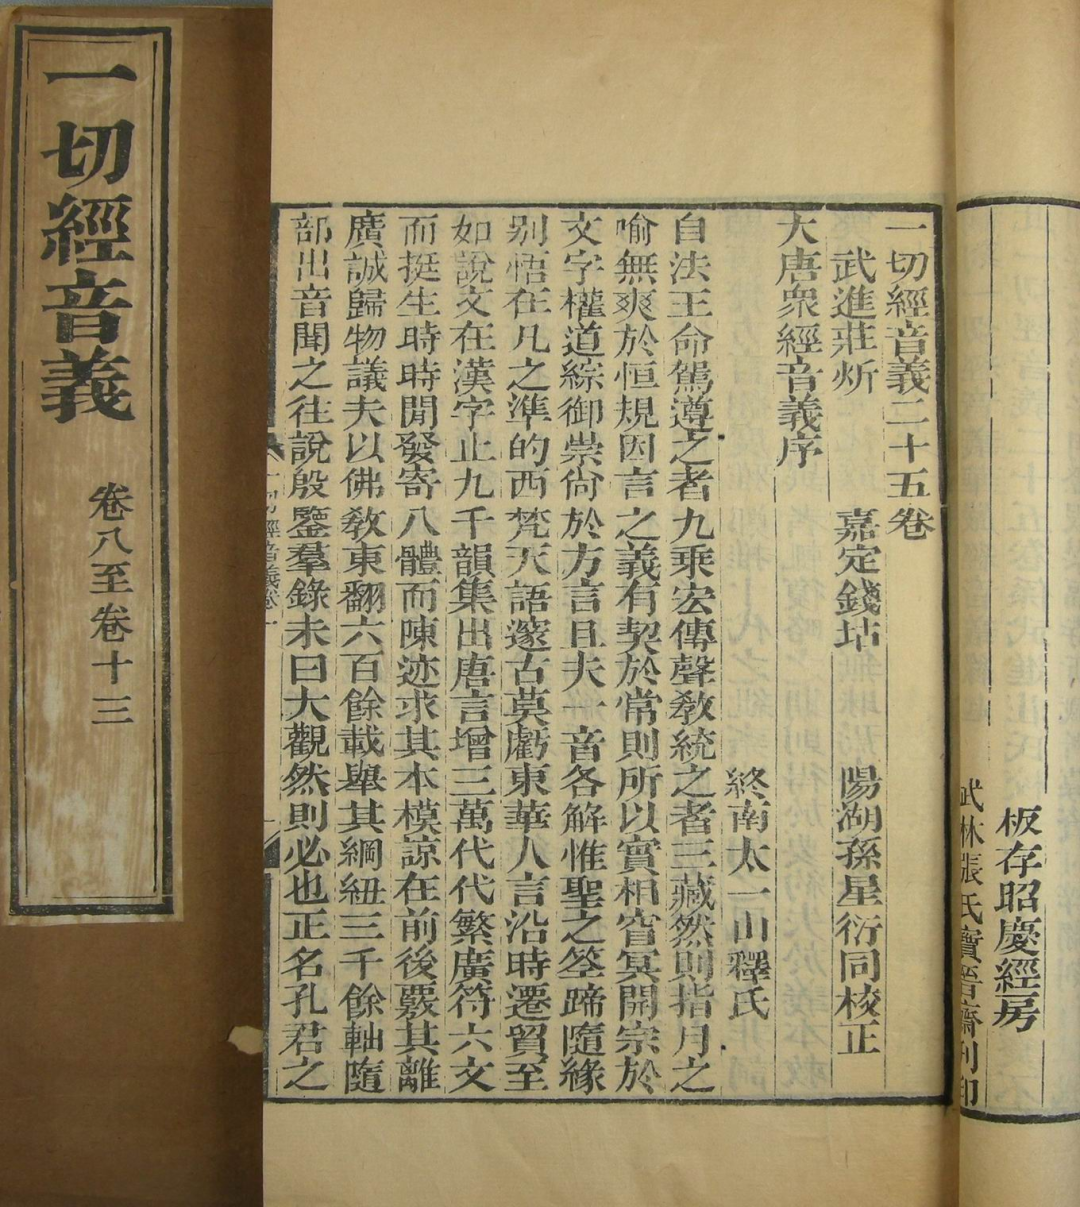 板存昭慶經房
武林張氏寶晉齋刊印
一切經音義二十五卷
武進莊炘 嘉定錢坫 陽湖孫星衍同校正
大唐衆經音義序
終南太一山釋氏
自法王命駕遵之者九乘宏傳聲教統之者三藏然則指月之
喻無爽於恒規因言之義有契於常則所以實相窅冥開宗於
文字權道綜御崇尙於方言且夫一音各解惟聖之筌蹄隨緣
别悟在凡之準的西梵天語邃古莫虧東華人言沿時遷貿至
如說文在漢字止九千韻集出唐言增三萬代代繁廣符六文
而挺生時時閒發寄八體而陳迹求其本模諒在前後覈其離
廣誠歸物議夫以佛教東翻六百餘載舉其綱紐三千餘軸隨
部出音聞之往說殷鑒羣錄未曰大觀然則必也正名孔君之
一切經音義卷一
一切經音義
卷八至卷十三